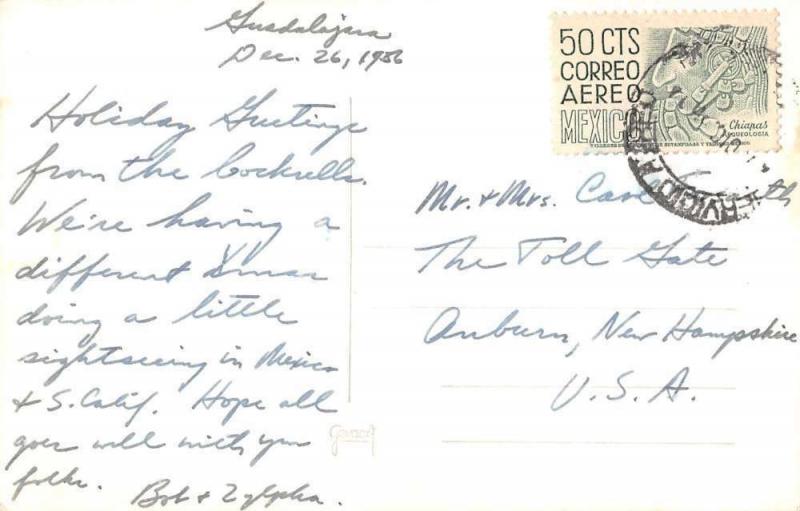 Guadalajara
Dec. 26, 1956
Holiday Greetings
from the Cockrells.
We're having a
different Xmas
doing a little
sightseeing in Mexico
& S. Calif. Hope all
goes well with you
folks.
Bob & Zylpha.
50 CTS
CORREO
AEREO
MEXICO
Chiapas
ARQUEOLOGIA
Mr. & Mrs.
The Toll Gate
Auburn, New Hampshire
U.S.A.